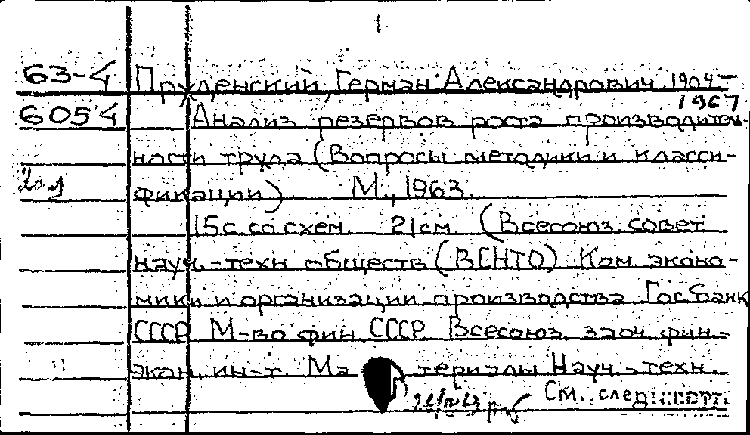 1
63-4 Пруденский, Герман Александрович 1904-
1967
6054 Анализ резервов роста производитель-
ности труда (Вопросы методики и класси-
фикации) М., 1963.
15с. со схем. 21см (Всесоюз. совет
науч.-техн обществ (ВСНТО) Ком. эконо-
мики и организации производства Госбанк
СССР М-во фин СССР Всесоюз. заоч. фин.-
экон. ин-т. Ма териалы Науч.-техн.
См. след. карт.